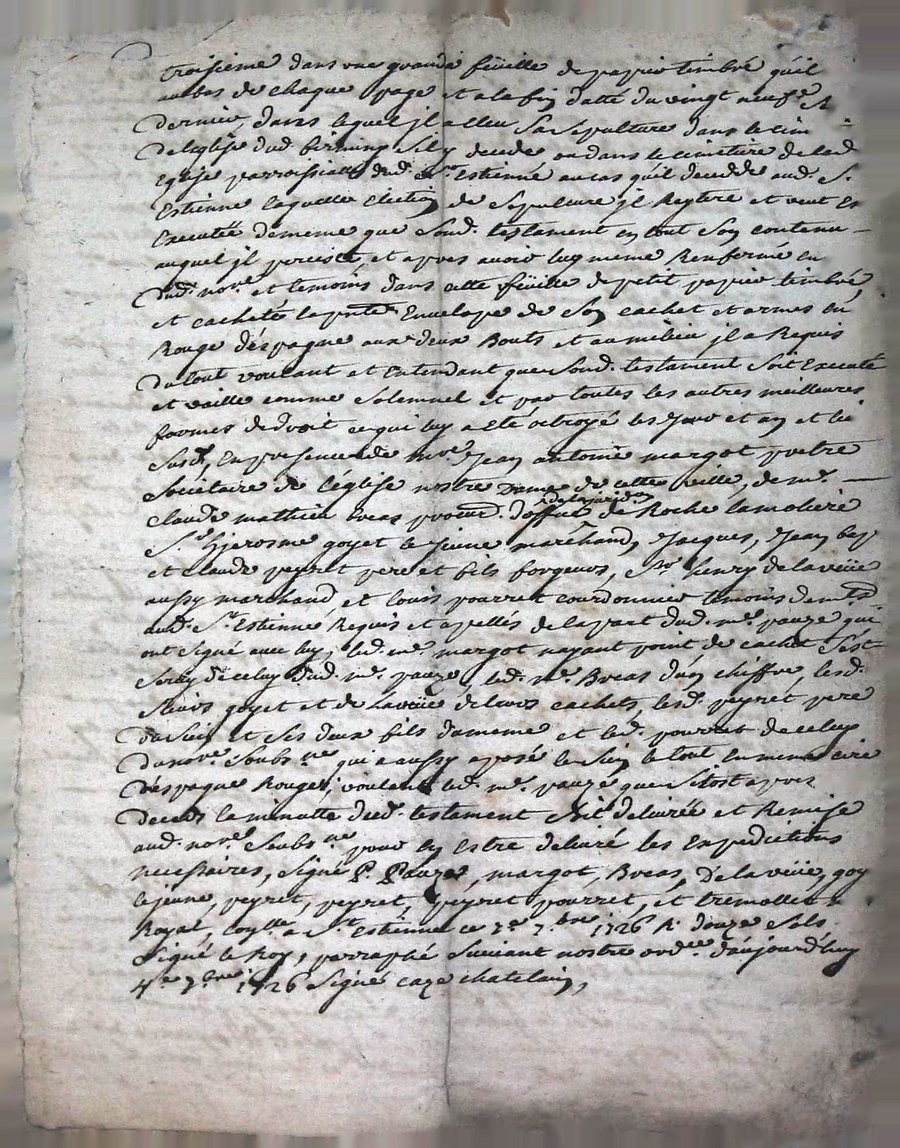 troisieme dans une grande feüille de papier timbré quil
au bas de chaque page et a la fin datté du vingt neufe
dernier, dans lequel jl a elleu sa sepulture dans le cim
de leglise dud. firminy sil y decede ou dans le cimetiere de lad.
Eglise parroissialle dud. St. Estienne au cas quil decedde aud. St.
Estienne laquelle election de sepulture jl Reytere et veut Es
Executée de meme que sond. testament en tout son contenu
auquel jl percistte et apres avoir luy meme Renfermé en
dud. nore. et temoins dans cette feüille de petit papier timbré
et cachetté la pnte. Envelope de son cachet et armes en
Rouge d'éspagne aux deux Bouts et au milieu jl a Requis
du tout voulant et entendant que sond. testament soit Executé
et vaille comme solemnel et par toutes les autres meilleures
formes de droit ce qui luy a été octroyé les jour et an et lieu
susd., En presence de mre. Jean antoine margot prebtre
societaire de l'église nostre Dame de cette ville, de mr.
claude mathieu bocas procur. d'office de la jurid.on de Roche lamoliere
Sr. hjerosme goyet le jeune marchand, Jacques, Jean bap
et claude peyret pere et fils forgeurs, Sr. henry de la veüe
aussy marchand et louis pourret courdonnier temoins demts.
aud. St. Estienne Requis et apellés de la part dud. mr. pauze qui
ont signé avec luy, led. mr. margot nayant point de cachet s'est
servy de celuy dud. mr. pauze, led. mr. Bocas d'un chiffre, lesd.
sieurs goyet et de la veüe de leurs cachets, lesd. peyret pere
du sien et ses deux fils du meme et led. pourret de celuy
du nore. soubsne. qui a aussy aposé le sien le tout en meme cire
d'éspagne Rouge; voulant led. mr. pauze que sitost apres
deces la minutte dud. testament soit delivrée et Remise
aud. nore. soubsne. pour en estre delivré les Expeditions
necessaires, signé P. Pauze, margot, Bocas, De la veüe, goy
le jeune, peyret, peyret peyret pourret, et tremollet
Royal, conlle. a St. Estienne ce 2e. 7.bre 1726 R. douze sols
signé le Roy, parraphé suivant nostre ordce. d'aujourd'huy
4e 7bre. 1726 signé caze chatelain,